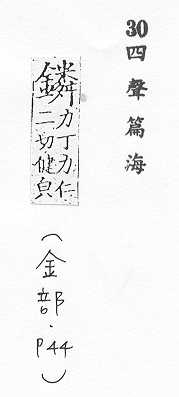 30四聲篇海
鏻力丁力仁
二切健皃
（金部.P44）